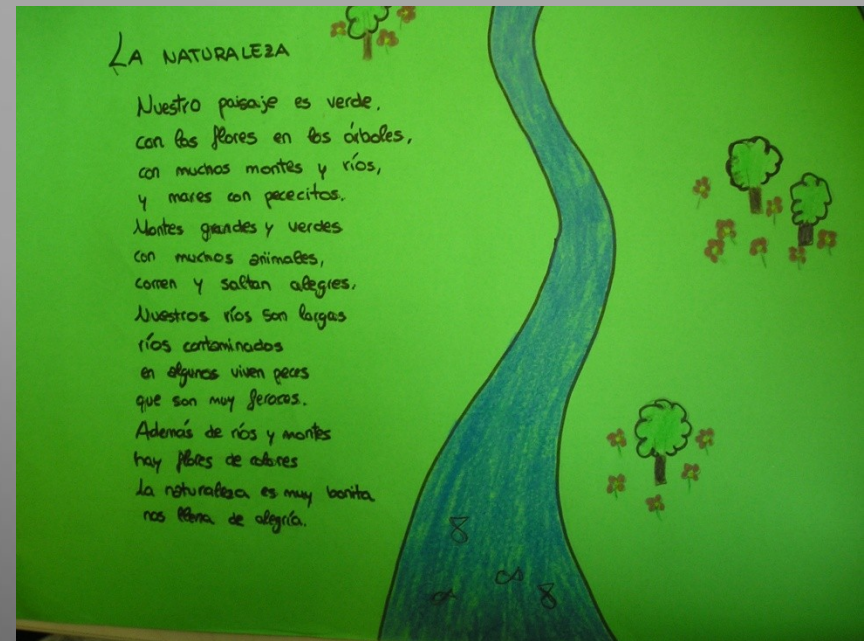 LA NATURALEZA
Nuestro paisaje es verde,
con las flores en los árboles,
con muchos montes y ríos,
y mares con pececitos.
Montes grandes y verdes
con muchos animales,
corren y saltan alegres.
Nuestros ríos son largos
ríos contaminados
en algunos viven peces
que son muy feroces.
Además de ríos y montes
hay flores de colores
La naturaleza es muy bonita
nos llena de alegría.